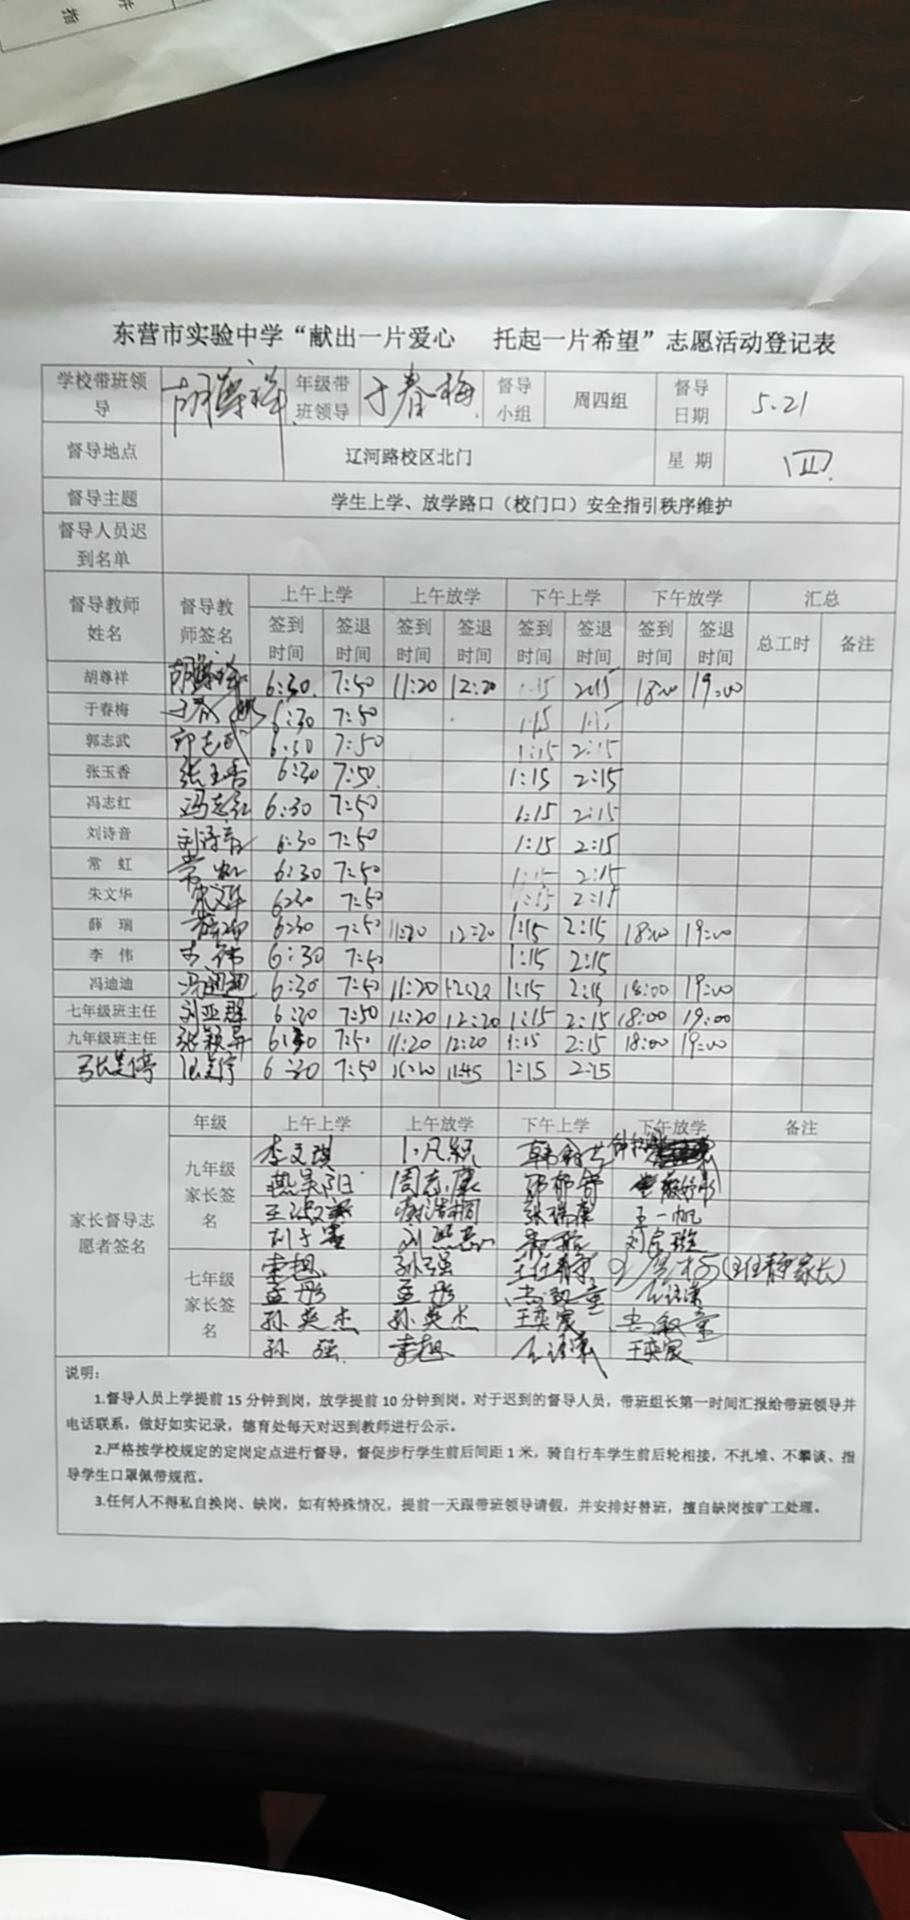 东营市实验中学“献出一片爱心 托起一片希望”志愿活动登记表
学校带班领导 胡尊祥 年级带班领导 于春梅 督导小组 周四组 督导日期 5.21
督导地点 辽河路校区北门 星 期 四
督导主题 学生上学、放学路口（校门口）安全指引秩序维护
督导人员迟到名单
督导教师姓名 督导教师签名 上午上学 上午放学 下午上学 下午放学 汇总
签到时间 签退时间 签到时间 签退时间 签到时间 签退时间 签到时间 签退时间 总工时 备注
胡尊祥 胡尊祥 6:30 7:50 11:20 12:20 1:15 2:15 18:00 19:00
于春梅 于春梅 6:30 7:50 1:15
郭志武 郭志武 6:30 7:50 1:15 2:15
张玉香 张玉香 6:30 7:50 1:15 2:15
冯志红 冯志红 6:30 7:50 1:15 2:15
刘诗音 刘诗音 6:30 7:50 1:15 2:15
常 虹 常虹 6:30 7:50 1:15 2:15
朱文华 朱文华 6:30 7:50 1:15 2:15
薛 瑞 薛瑞 6:30 7:50 11:20 12:20 1:15 2:15 18:00 19:00
李 伟 李伟 6:30 7:50 1:15 2:15
冯迪迪 冯迪迪 6:30 7:50 11:20 12:20 1:15 2:15 18:00 19:00
七年级班主任 刘亚群 6:30 7:50 11:20 12:20 1:15 2:15 18:00 19:00
九年级班主任 6:30 7:50 11:20 12:20 1:15 2:15 18:00 19:00
6:30 7:50 11:20 11:45 1:15 2:15
家长督导志愿者签名 年级 上午上学 上午放学 下午上学 下午放学 备注
九年级家长签名 李文琪 卜凡颖
燕昊阳 周志康
张瑞 王一帆
七年级家长签名 索想 孙强 王仕静 (王仕静家长)
孟彤 孟彤
孙英杰 孙英杰 王奕宸
孙 强 索想 王奕宸
说明：
1.督导人员上学提前 15 分钟到岗，放学提前 10 分钟到岗。对于迟到的督导人员，带班组长第一时间汇报给带班领导并
电话联系，做好如实记录，德育处每天对迟到教师进行公示。
2.严格按学校规定的定岗定点进行督导，督促步行学生前后间距 1 米，骑自行车学生前后轮相接，不扎堆、不攀谈、指
导学生口罩佩带规范。
3.任何人不得私自换岗、缺岗，如有特殊情况，提前一天跟带班领导请假，并安排好替班，擅自缺岗按旷工处理。